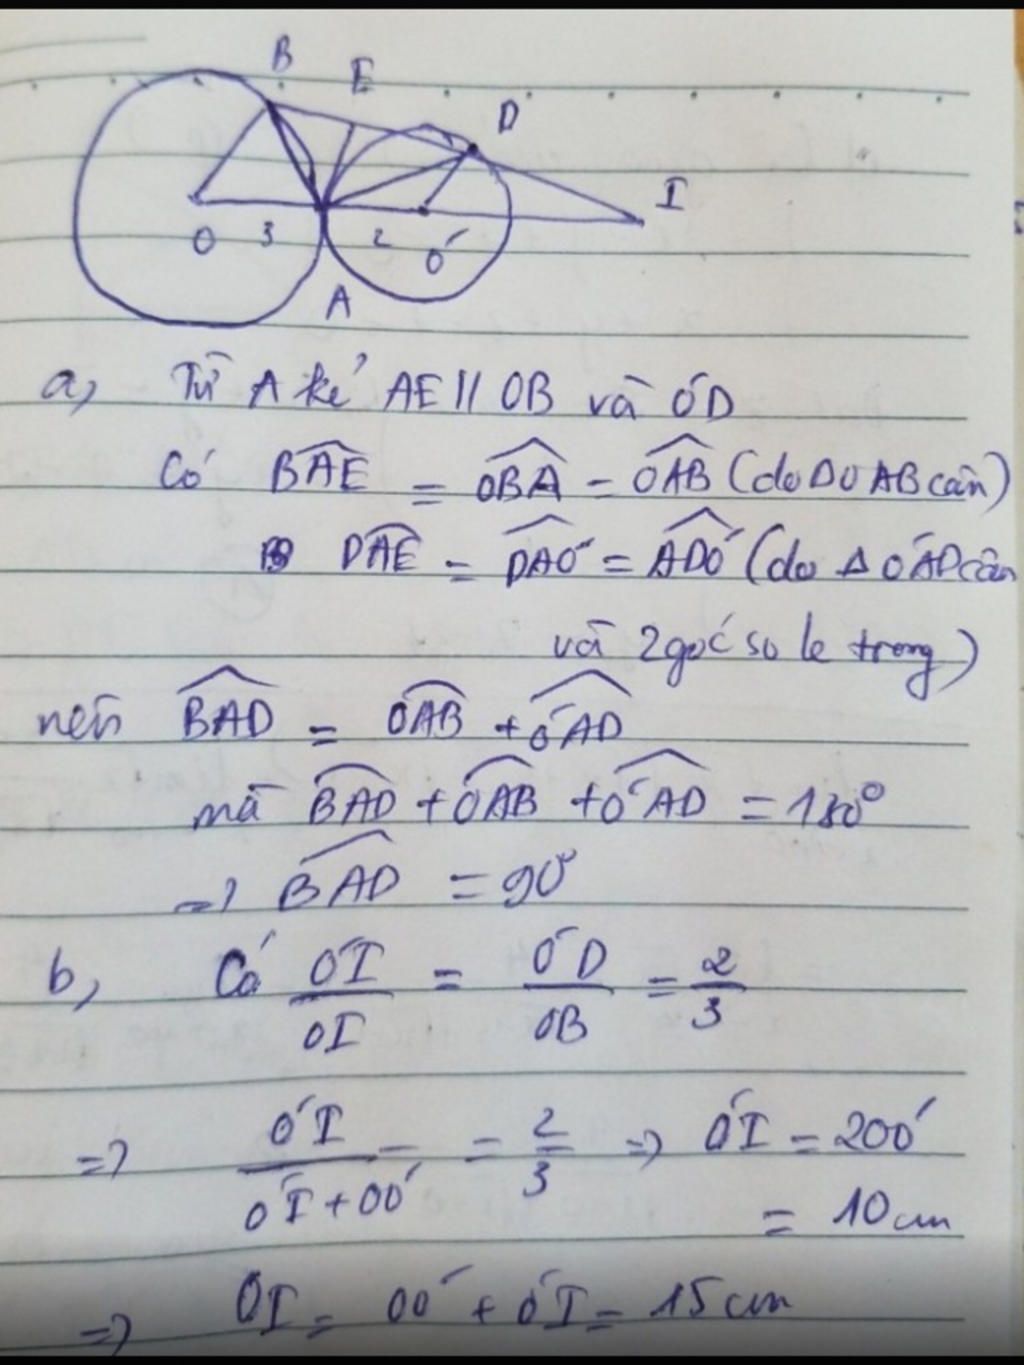 B E D I
O 3 2 O'
A
a, Từ A kẻ AE // OB và O'D
Có BAE = OBA = OAB (do Δ OAB cân)
DAE = DAO' = ADO' (do Δ O'AD cân
và 2 góc so le trong)
nên BAD = OAB + O'AD
mà BAD + OAB + O'AD = 180°
=> BAD = 90°
b, Có O'I / OI = O'D / OB = 2/3
=> O'I / O'I + OO' = 2/3 => O'I = 2OO'
= 10 cm
=> OI = OO' + O'I = 15 cm